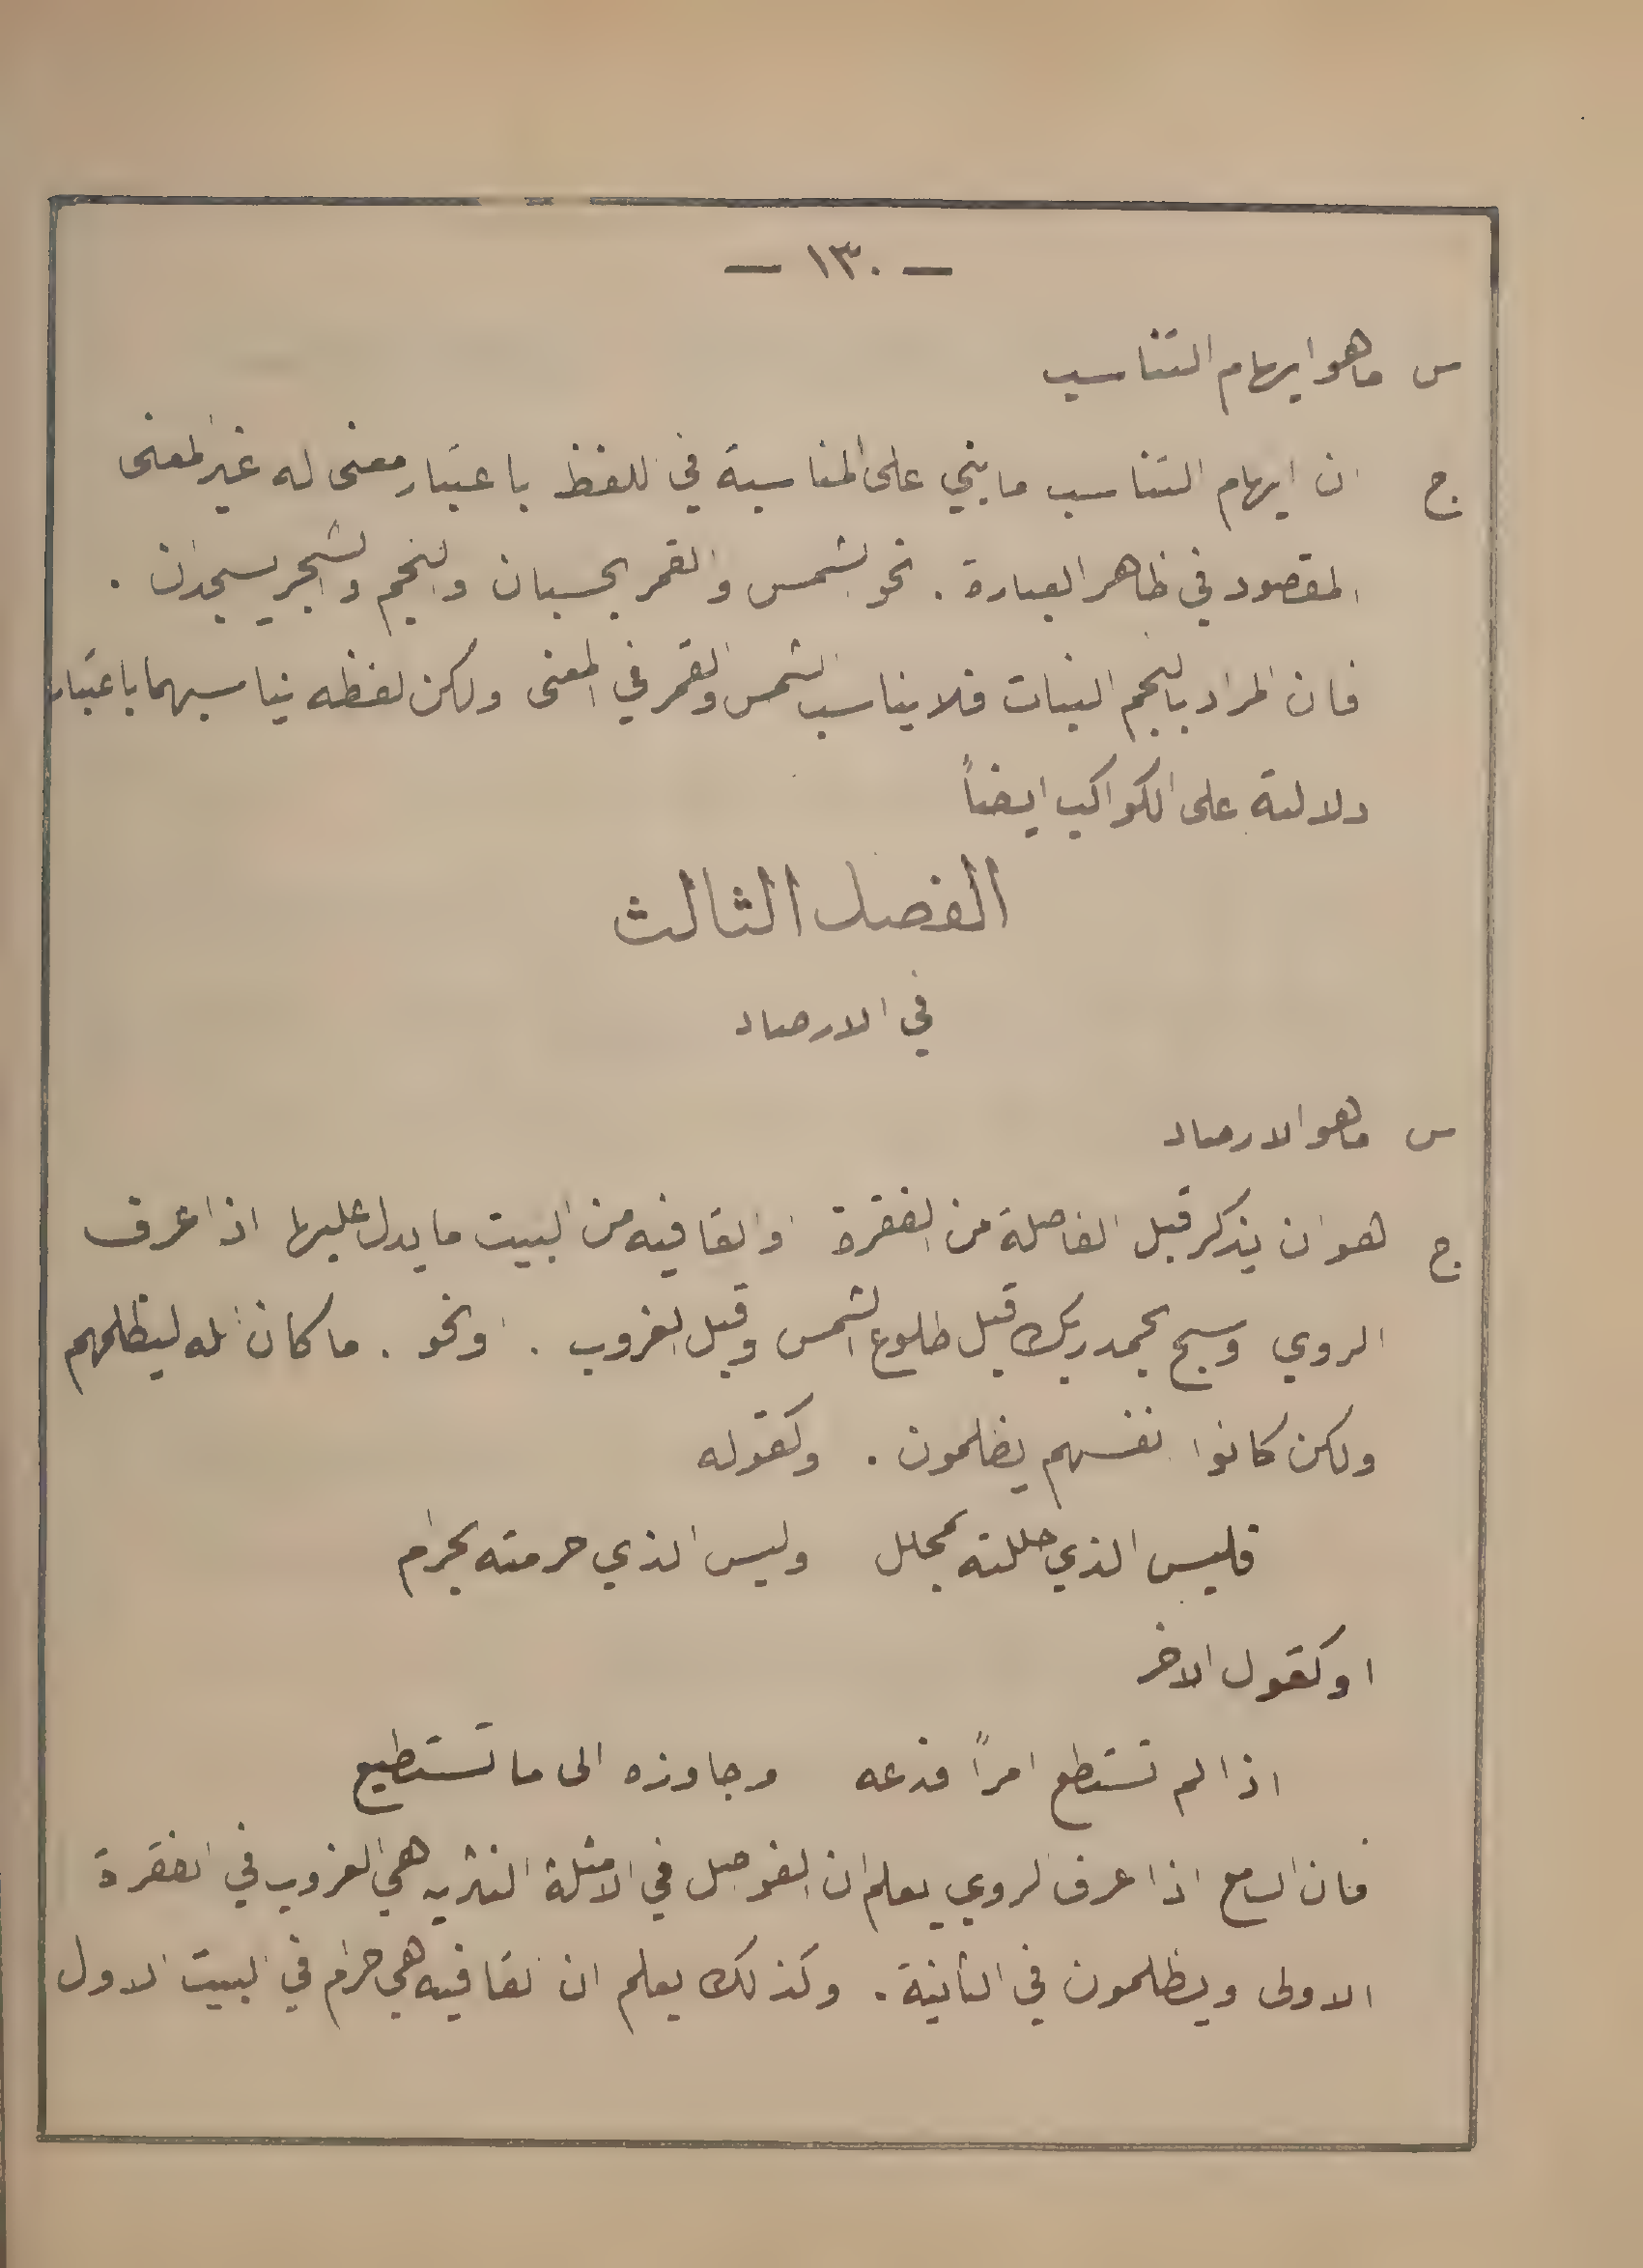 — ١٣٠ —
س ماهو ايهام التناسب
ج ان ايهام التناسب ما بني على المناسبة في اللفظ باعتبار معنى له غير المعنى
المقصود في ظاهر العبارة . نحو الشمس والقمر بحسبان والنجم والشجر يسجدان .
فان المراد بالنجم النبات فلا يناسب الشمس والقمر في المعنى ولكن لفظه يناسبهما باعتبار
دلالتة على الكواكب ايضاً
الفصل الثالث
في الارصاد
س ماهو الارصاد
ج هو ان يذكر قبل الفاصلة من الفقرة او القافيه من البيت ما يدل عليها اذا عرف
الروي وسبح بحمد ربك قبل طلوع الشمس وقبل الغروب . ونحو . ما كان الله ليظلمهم
ولكن كانوا انفسهم يظلمون . وكقوله
فليس الذي حللته بمحلل وليس الذي حرمته بحرام
او كقول الاخر
اذا لم تستطع امراً فدعه وجاوزه الى ما تستطيع
فان السامع اذا عرف الروي يعلم ان الفواصل في الامثلة النثريه هي الغروب في الفقرة
الاولى ويظلمون في الثانية . وكذلك يعلم ان القافيه هي حرام في البيت الاول